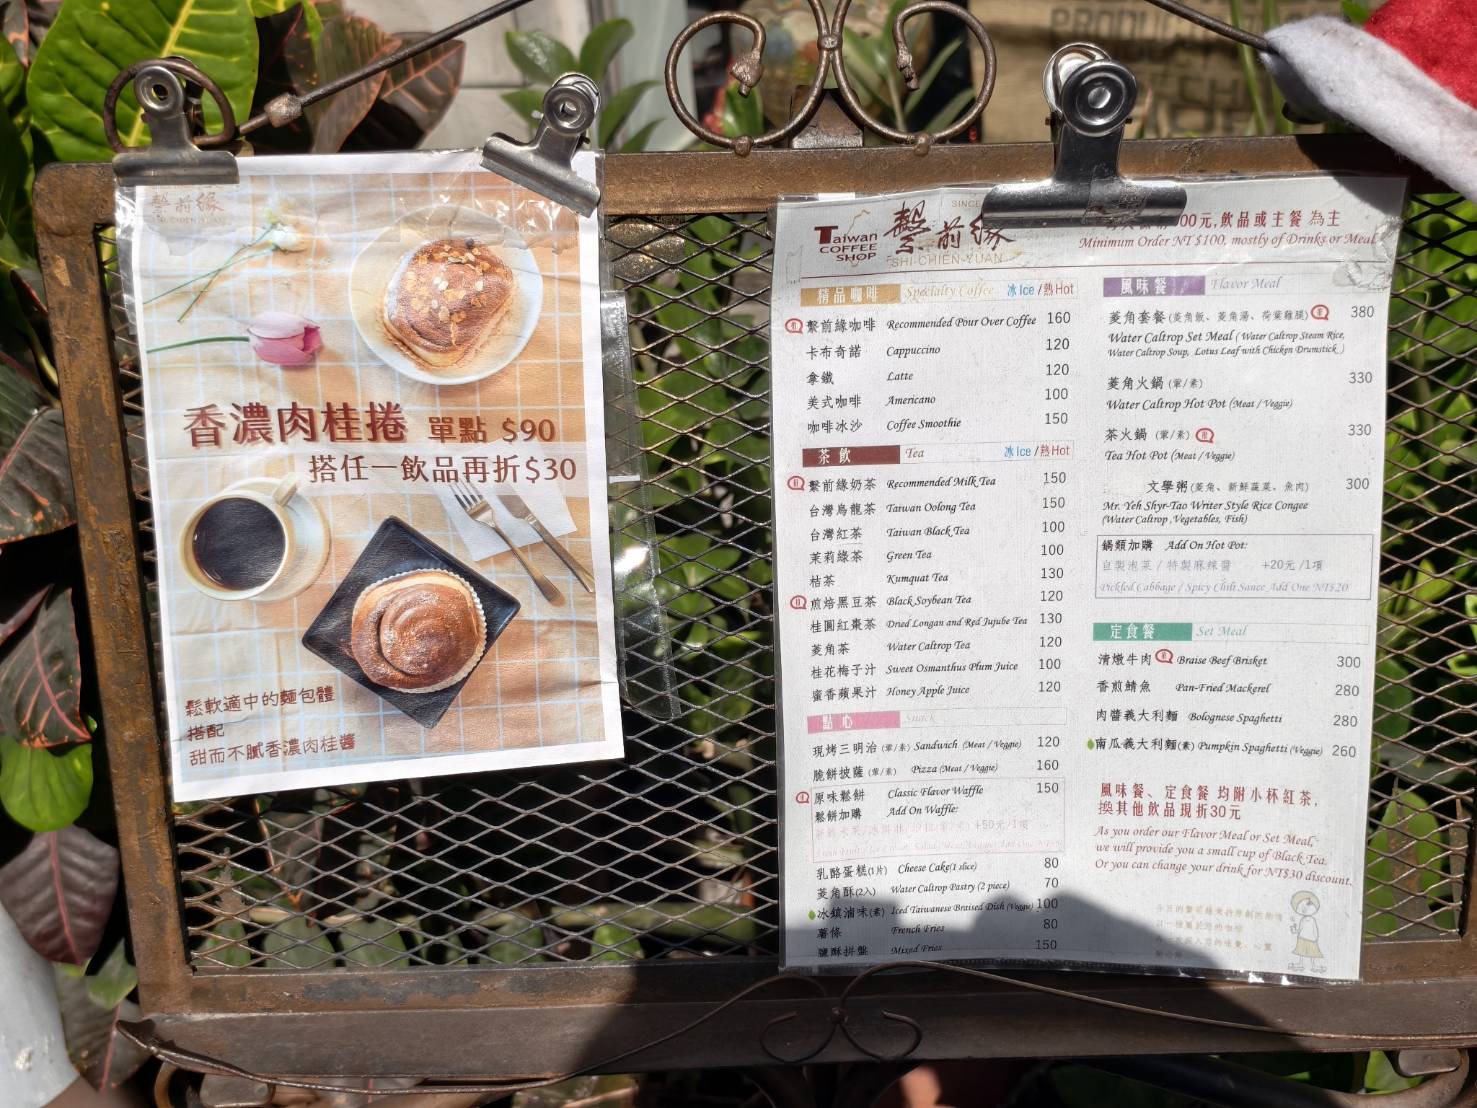 繫前緣
SHI-CHIEN-YUAN
香濃肉桂捲 單點 $90
搭任一飲品再折$30
鬆軟適中的麵包體
搭配
甜而不膩香濃肉桂醬
SINCE
Taiwan
COFFEE
SHOP
繫前緣
SHI-CHIEN-YUAN
00元,飲品或主餐 為主
Minimum Order NT $100, mostly of Drinks or Meal
精品咖啡 Specialty Coffee 冰Ice/熱Hot
繫前緣咖啡 Recommended Pour Over Coffee 160
卡布奇諾 Cappuccino 120
拿鐵 Latte 120
美式咖啡 Americano 100
咖啡冰沙 Coffee Smoothie 150
茶飲 Tea 冰Ice/熱Hot
繫前緣奶茶 Recommended Milk Tea 150
台灣烏龍茶 Taiwan Oolong Tea 150
台灣紅茶 Taiwan Black Tea 100
茉莉綠茶 Green Tea 100
桔茶 Kumquat Tea 130
煎焙黑豆茶 Black Soybean Tea 120
桂圓紅棗茶 Dried Longan and Red Jujube Tea 130
菱角茶 Water Caltrop Tea 120
桂花梅子汁 Sweet Osmanthus Plum Juice 100
蜜香蘋果汁 Honey Apple Juice 120
點心 Snack
現烤三明治(葷/素) Sandwich (Meat / Veggie) 120
脆餅披薩(葷/素) Pizza (Meat / Veggie) 160
原味鬆餅 Classic Flavor Waffle 150
鬆餅加購 Add On Waffle:
+50元/1項
乳酪蛋糕(1片) Cheese Cake(1 slice) 80
菱角酥(2入) Water Caltrop Pastry (2 piece) 70
冰鎮滷味(素) Iced Taiwanese Braised Dish (Veggie) 100
薯條 French Fries 80
鹽酥拼盤 Mixed Fries 150
風味餐 Flavor Meal
菱角套餐(菱角飯、菱角湯、荷葉雞腿) 380
Water Caltrop Set Meal ( Water Caltrop Steam Rice,
Water Caltrop Soup, Lotus Leaf with Chicken Drumstick )
菱角火鍋 (葷/素) 330
Water Caltrop Hot Pot (Meat / Veggie)
茶火鍋 (葷/素) 330
Tea Hot Pot (Meat / Veggie)
文學粥(菱角、新鮮蔬菜、魚肉) 300
Mr. Yeh Shyr-Tao Writer Style Rice Congee
(Water Caltrop ,Vegetables, Fish)
鍋類加購 Add On Hot Pot:
自製泡菜 / 特製麻辣醬 +20元 /1項
Pickled Cabbage / Spicy Chili Sauce Add One NT$20
定食餐 Set Meal
清燉牛肉 Braise Beef Brisket 300
香煎鯖魚 Pan-Fried Mackerel 280
肉醬義大利麵 Bolognese Spaghetti 280
南瓜義大利麵(素) Pumpkin Spaghetti (Veggie) 260
風味餐、定食餐 均附小杯紅茶,
換其他飲品現折30元
As you order our Flavor Meal or Set Meal,
we will provide you a small cup of Black Tea.
Or you can change your drink for NT$30 discount.